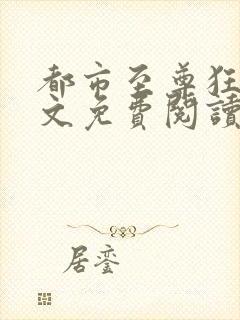 都市至尊狂
文免費閱讀
居鸾